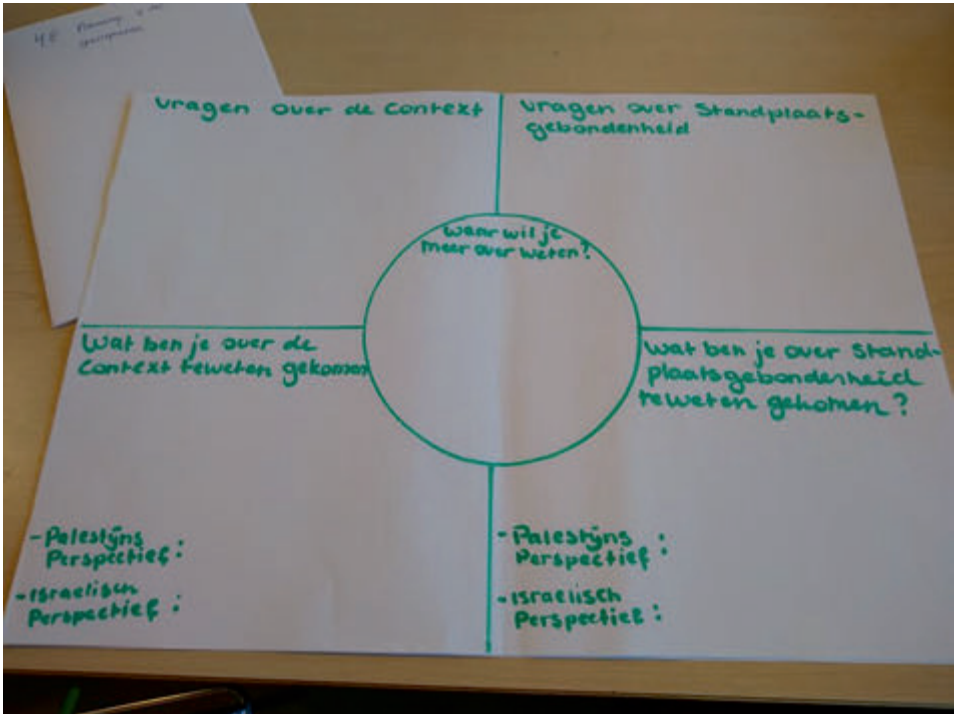 vragen over de Context
vragen over Standplaats-
gebondenheid
waar wil je
meer over weten?
Wat ben je over de
Context teweten gekomen
Wat ben je over Stand-
plaatsgebondenheid
teweten gekomen?
-Palestijns
Perspectief:
-Israelisch
Perspectief:
-Palestijns
Perspectief:
-Israelisch
Perspectief: